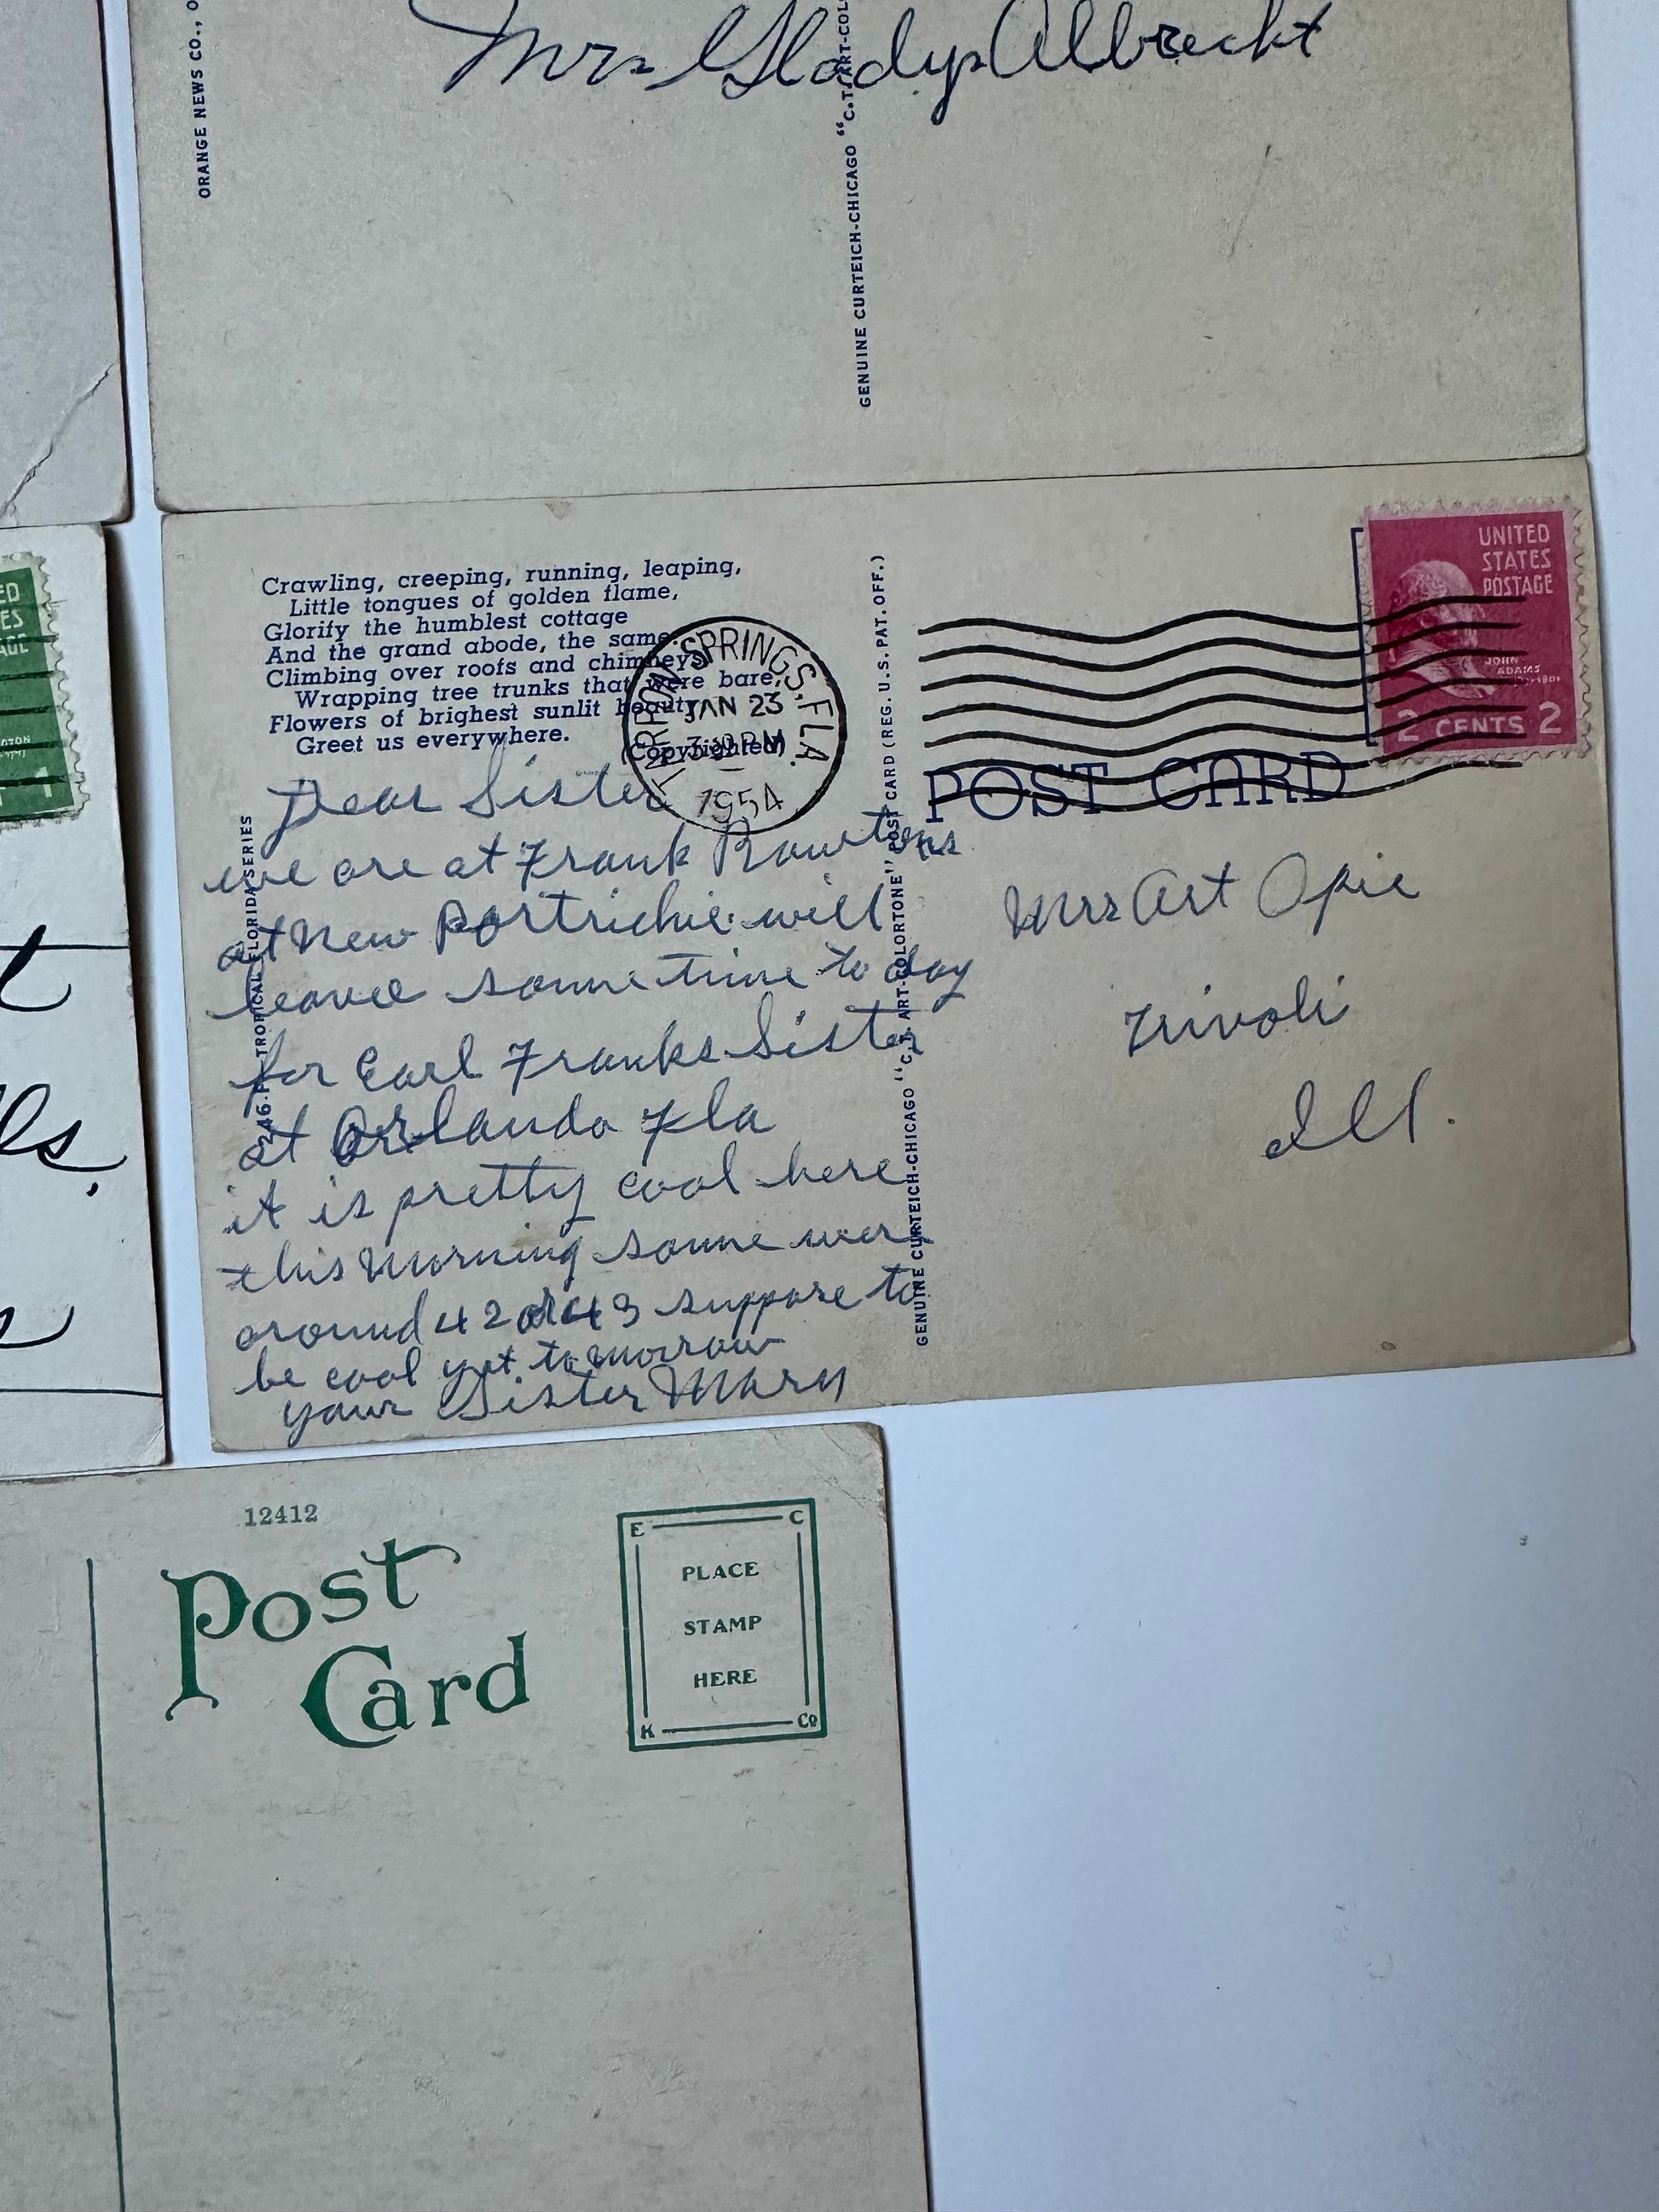 ORANGE NEWS CO.,
Mrs Gladys Albrecht
GENUINE CURTEICH-CHICAGO "C.T. ART-COL
Crawling, creeping, running, leaping,
Little tongues of golden flame,
Glorify the humblest cottage
And the grand abode, the same;
Climbing over roofs and chimneys
Wrapping tree trunks that were bare,
Flowers of brighest sunlit beauty
Greet us everywhere.
(Copyrighted)
TARPON SPRINGS, FLA.
JAN 23
PM
1954
Dear Sister
we are at Frank Rowtons
at New Portrichie will
leave some time to day
for Earl Franks Sister
at Orlando Fla
it is pretty cool here
this Morning some wer
around 42 or 43 suppose to
be cool yet tomorrow
your Sister Mary
TROPICAL FLORIDA SERIES
GENUINE CURTEICH-CHICAGO "C.T. ART-COLORTONE" POST CARD (REG. U.S. PAT. OFF.)
UNITED
STATES
POSTAGE
JOHN
ADAMS
2 CENTS 2
POST CARD
Mrs Art Opie
Trivoli
Ill.
ls.
1
12412
Post
Card
E C
PLACE
STAMP
HERE
K Co